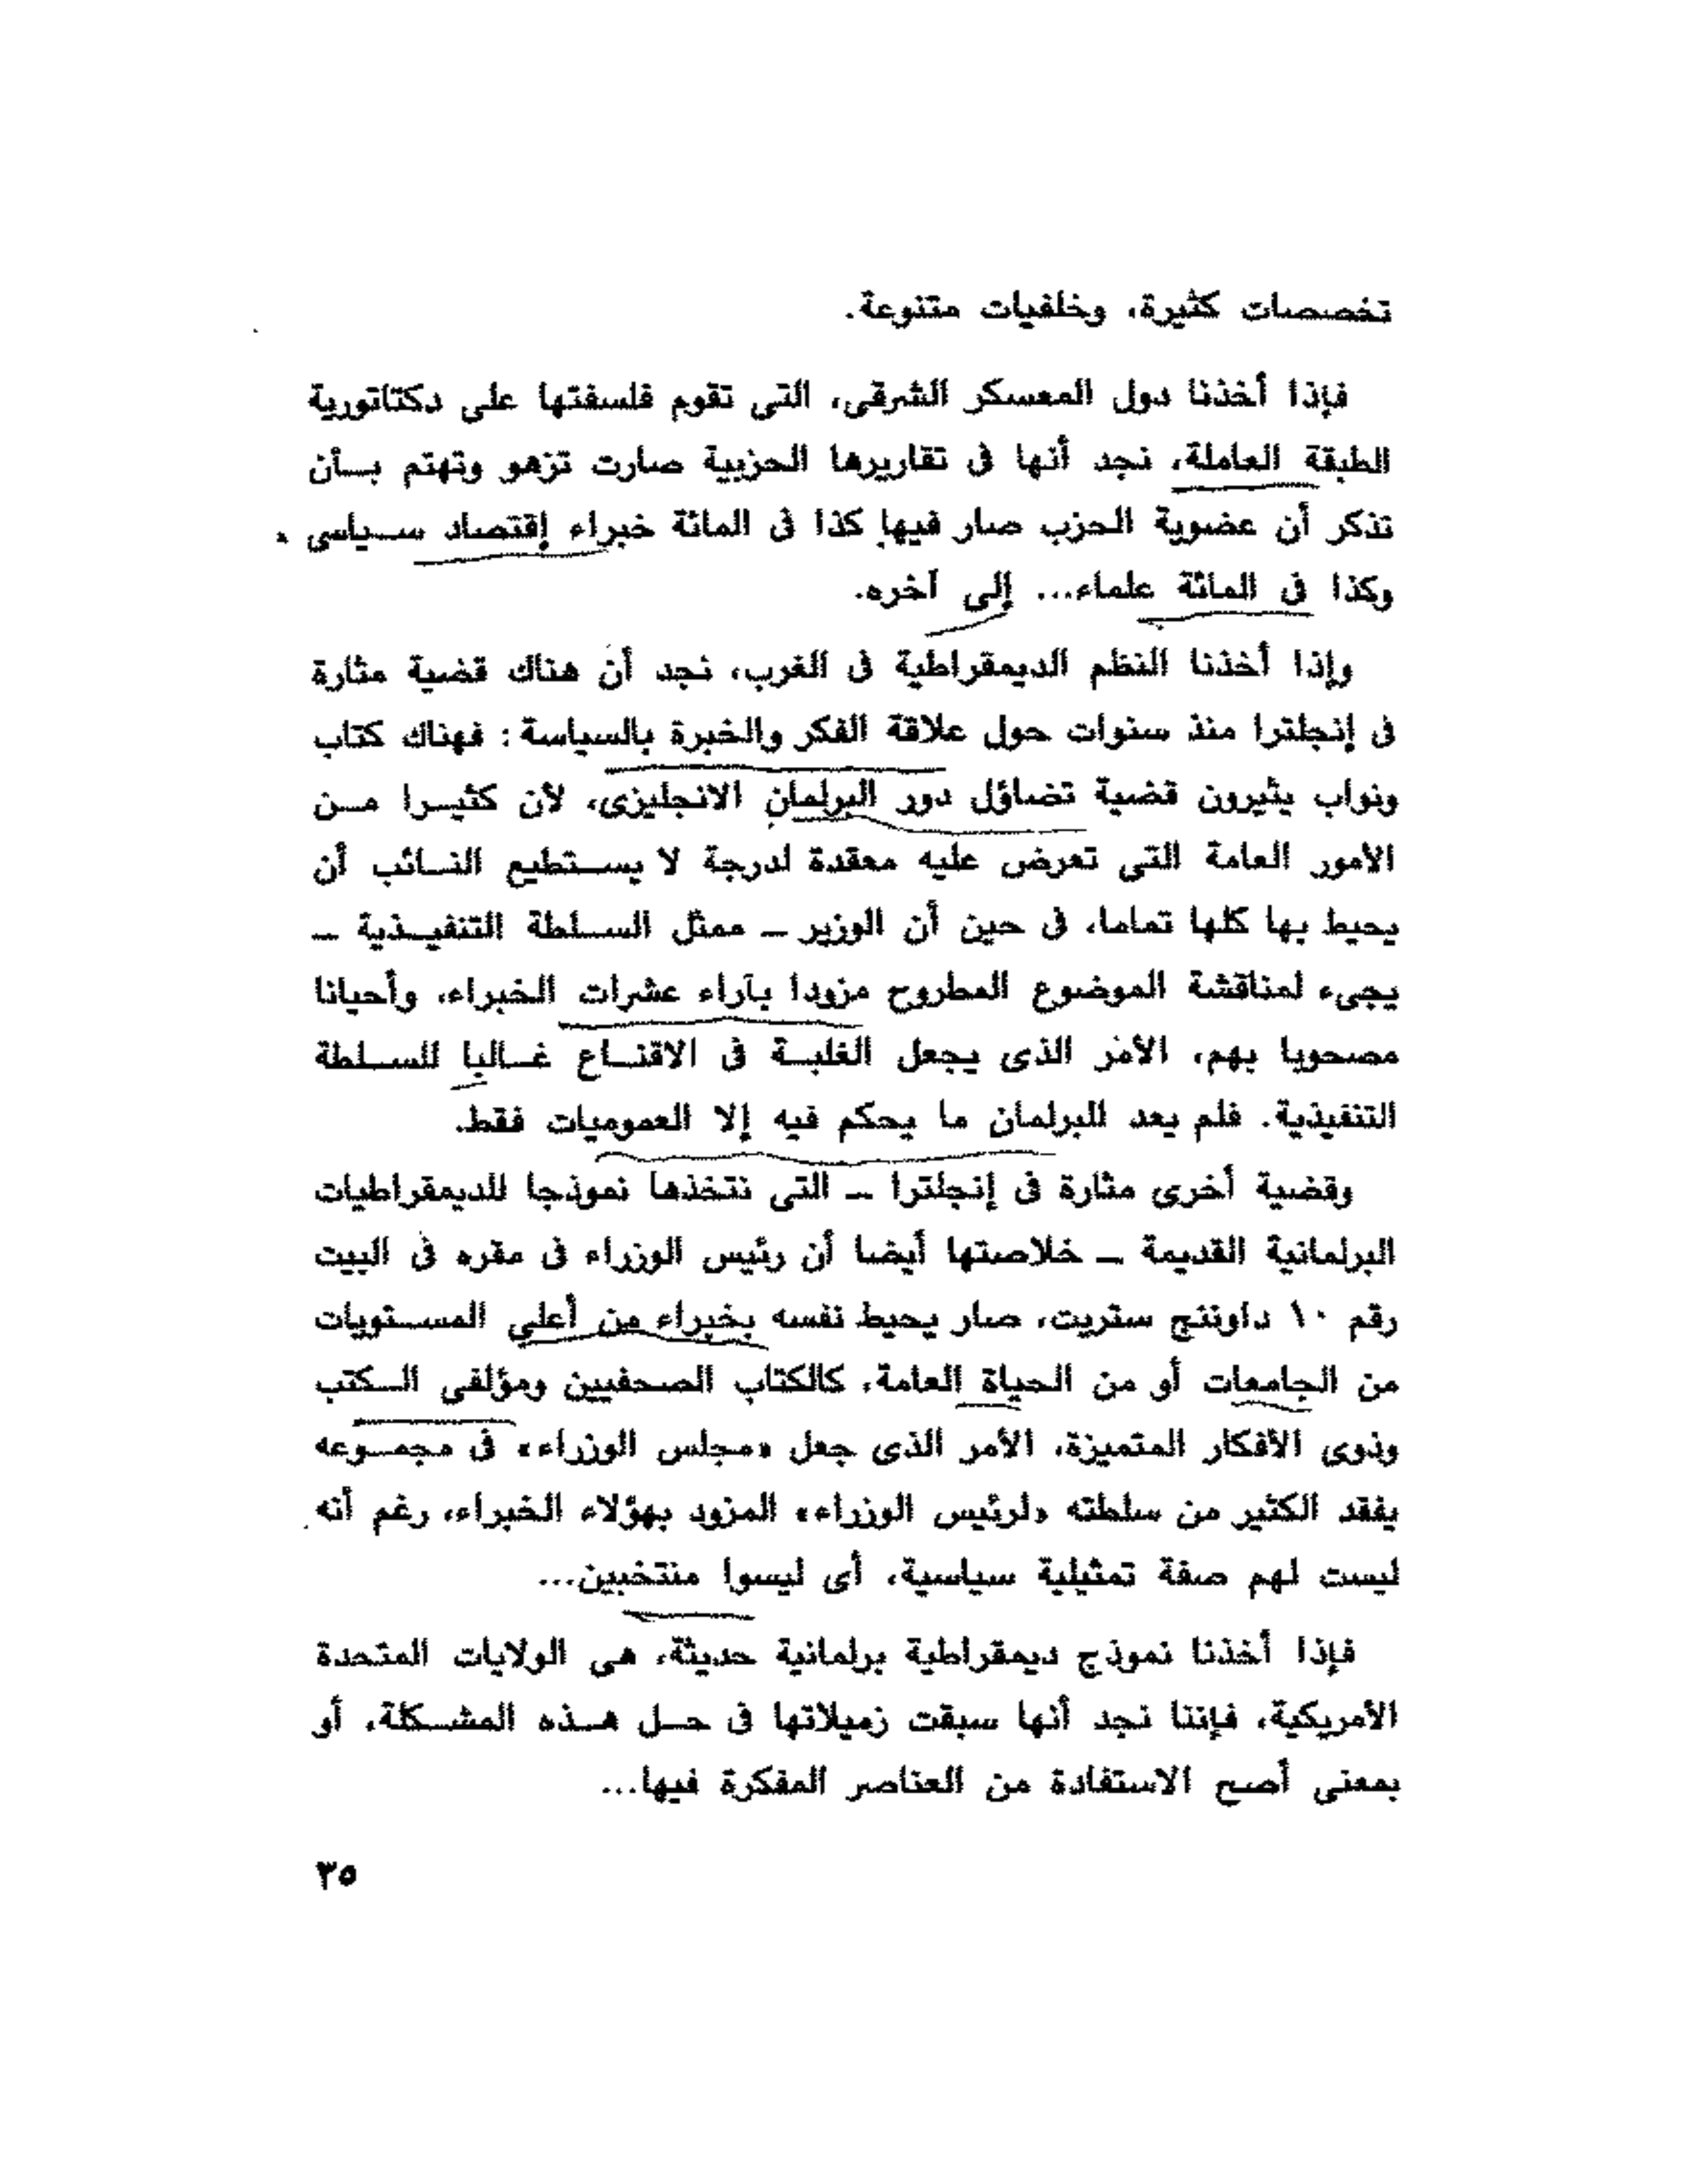 تخصصات كثيرة، وخلفيات متنوعة.
فإذا أخذنا دول المعسكر الشرقى، التى تقوم فلسفتها على دكتاتورية
الطبقة العاملة، نجد أنها فى تقاريرها الحزبية صارت تزهو وتهتم بأن
تذكر أن عضوية الحزب صار فيها كذا فى المائة خبراء إقتصاد سياسى،
وكذا فى المائة علماء... إلى آخره.
وإذا أخذنا النظم الديمقراطية فى الغرب، نجد أن هناك قضية مثارة
فى إنجلترا منذ سنوات حول علاقة الفكر والخبرة بالسياسة: فهناك كتاب
ونواب يثيرون قضية تضاؤل دور البرلمان الانجليزى، لأن كثيرا من
الأمور العامة التى تعرض عليه معقدة لدرجة لا يستطيع النائب أن
يحيط بها كلها تماما، فى حين أن الوزير ــ ممثل السلطة التنفيذية ــ
يجىء لمناقشة الموضوع المطروح مزودا بآراء عشرات الخبراء، وأحيانا
مصحوبا بهم، الأمر الذى يجعل الغلبة فى الاقناع غالبا للسلطة
التنفيذية. فلم يعد للبرلمان ما يحكم فيه إلا العموميات فقط.
وقضية أخرى مثارة فى إنجلترا ــ التى نتخذها نموذجا للديمقراطيات
البرلمانية القديمة ــ خلاصتها أيضا أن رئيس الوزراء فى مقره فى البيت
رقم ١٠ داوننج ستريت، صار يحيط نفسه بخبراء من أعلى المستويات
من الجامعات أو من الحياة العامة، كالكتاب الصحفيين ومؤلفى الكتب
وذوى الأفكار المتميزة، الأمر الذى جعل «مجلس الوزراء» فى مجموعه
يفقد الكثير من سلطته «لرئيس الوزراء» المزود بهؤلاء الخبراء، رغم أنه
ليست لهم صفة تمثيلية سياسية، أى ليسوا منتخبين...
فإذا أخذنا نموذج ديمقراطية برلمانية حديثة، هى الولايات المتحدة
الأمريكية، فإننا نجد أنها سبقت زميلاتها فى حل هذه المشكلة، أو
بمعنى أصح الاستفادة من العناصر المفكرة فيها...
٣٥